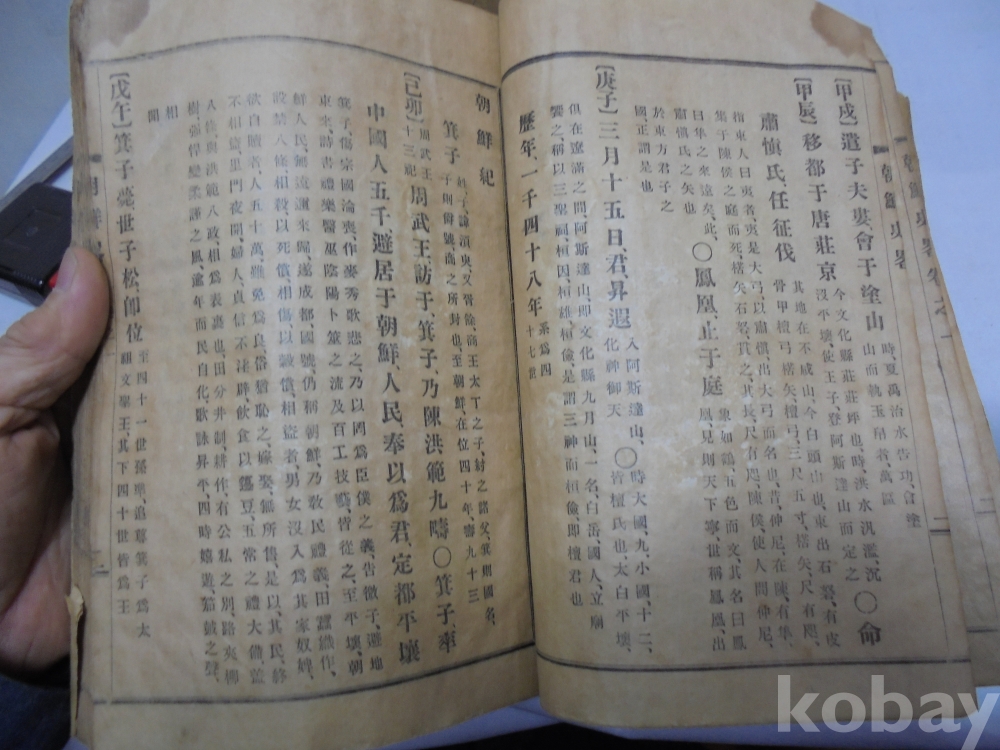 朝鮮史畧
【甲戌】遣子夫婁、會于塗山 時、夏禹治水告功、會塗山而執玉帛者、萬區 〇命
【甲辰】移都于唐莊京 今文化縣莊莊坪也、時、洪水汎濫、沉沒平壤、使王子登阿斯達山而定之
肅愼氏、任征伐 其地在不咸山、今白頭山也、東出石砮、有皮骨甲檀弓楛矢、檀弓、三尺五寸、楛矢、尺有咫、
指東人曰夷者、夷是大弓、以肅愼、出大弓而名也、昔、仲尼、在陳、有隼、
集于陳侯之庭而死、楛矢、石砮、貫之、其長、尺有咫、陳侯、使人問仲尼、
曰隼之來遠矣、此、肅愼氏之矢也 〇鳳凰、止于庭 象如鷄、五色而文、其名曰鳳凰、見則天下寧、世稱鳳凰、出
於東方君子之國、正謂是也
【庚子】三月十五日、君、昇遐 入阿斯達山、化神御天 〇時大國、九、小國、十二、皆檀氏也、太白平壤、
俱在遼滿之間、阿斯達山、卽文化縣九月山、一名、白岳、國人、立廟
饗之、稱以三聖祠、桓因、桓雄、桓儉、是謂三神而桓儉、卽檀君也
歷年、一千四十八年 系爲四十七世
朝鮮紀
箕子 姓子、諱須臾、又胥餘、商王太丁之子、紂之諸父、箕則國名、子則爵號、商之所封也、至朝鮮、在位四十年、壽九十三
【己卯】周武王十三祀 周武王、訪于箕子、乃陳洪範九疇 〇箕子、率
中國人五千、避居于朝鮮、人民、奉以爲君、定都平壤
箕子、傷宗國淪喪、作麥秀歌悲之、乃以罔爲臣僕之義、告微子、避地
東來、詩書禮樂醫巫陰陽卜筮之流及百工技藝、皆從之、至平壤、朝
鮮人民、無遠邇來歸、遂成都、國號、仍稱朝鮮、乃敎民禮義、田蠶織作、
設禁八條、相殺、以死償、相傷、以穀償、相盜者、男女沒入爲其家奴婢、
欲自贖者、人五十萬、雖免爲良、俗猶恥之、嫁娶、無所售、是以、其民、終
不相盜、里門夜開、婦人、貞信不淫辟、飮食以籩豆、五常之禮大備、蓋
八條、與洪範八政、相爲表裏也、田分井制、耕作、有公私之別、路夾柳
樹、强悍變柔謹之風、逾年而民自化、歌詠昇平、四時嬉遊、笳鼓之聲、
相聞
【戊午】箕子薨、世子松卽位 至四十一世孫準、追尊箕子爲太祖文聖王、其下四十世皆爲王
kobay